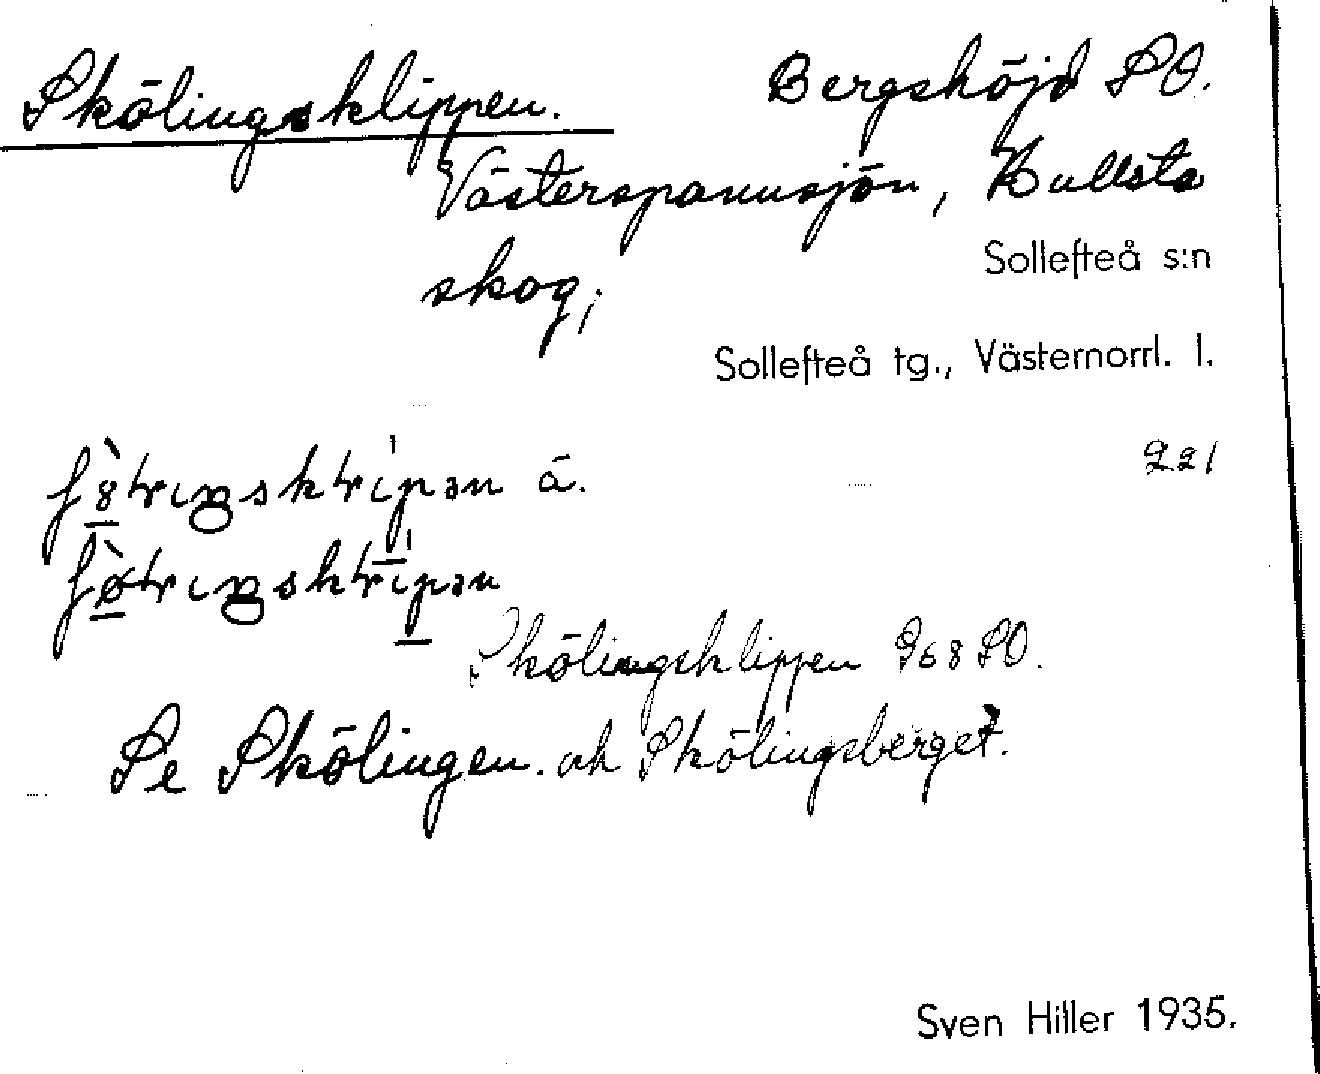 Skölingsklippen. Bergshöjd SO.
Västerspannsjön, Hullsta
skog;
Sollefteå s:n
Sollefteå tg., Västernorrl. l.
221
á.
Skölingsklippen 968 SO.
Se Skölingen. och Skölingsberget.
Sven Hiller 1935.